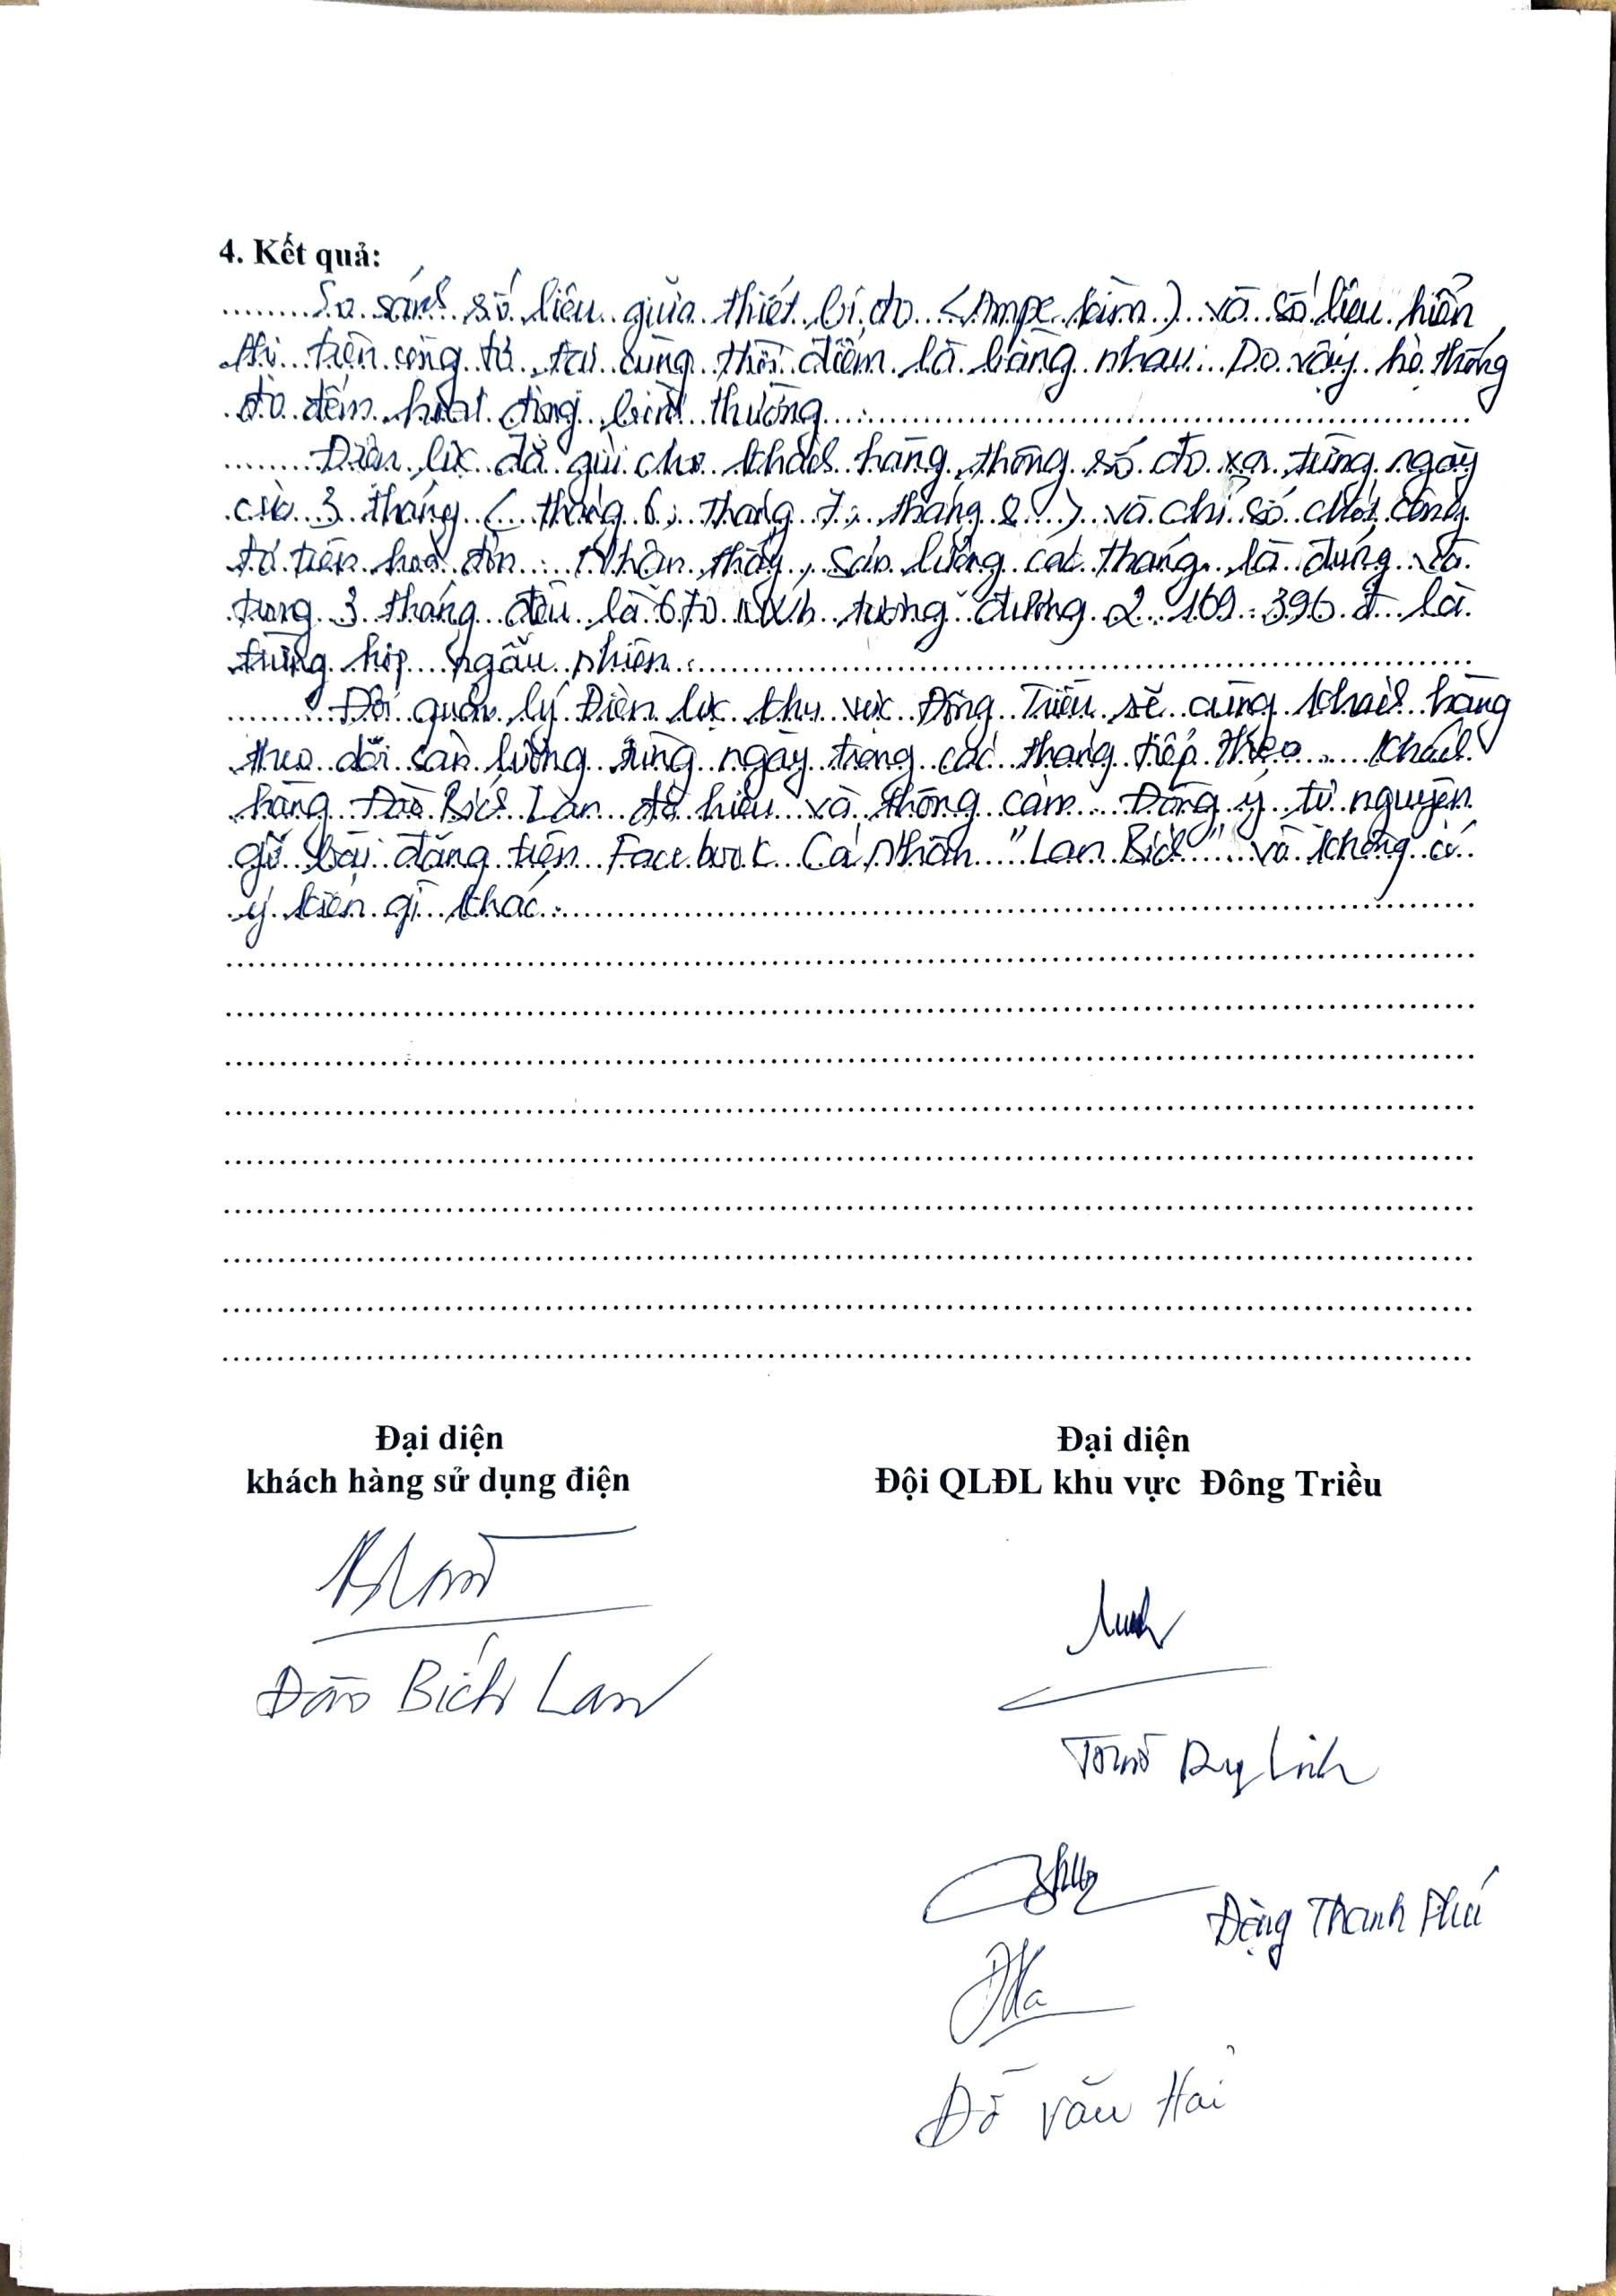 4. Kết quả:
So sánh số liệu giữa thiết bị đo (Ampe kìm) và số liệu hiển
thị trên công tơ tại cùng thời điểm là bằng nhau. Do vậy hệ thống
đo đếm hoạt động bình thường.
Điện lực đã gửi cho khách hàng thông số đo xa từng ngày
của 3 tháng (tháng 6, tháng 7, tháng 8) và chỉ số chốt công
tơ trên hoá đơn. Nhận thấy, sản lượng các tháng là đúng và
trong 3 tháng đều là 670 kWh tương đương 2.169.396 đ là
trùng hợp ngẫu nhiên.
Đội quản lý Điện lực khu vực Đông Triều sẽ cùng khách hàng
theo dõi sản lượng từng ngày trong các tháng tiếp theo. Khách
hàng Đào Bích Lan đã hiểu và thông cảm. Đồng ý, tự nguyện
gỡ bài đăng trên Facebook Cá nhân "Lan Bích" và không có
ý kiến gì khác.
Đại diện
khách hàng sử dụng điện
Đào Bích Lan
Đại diện
Đội QLĐL khu vực Đông Triều
Duy Linh
Đặng Thanh Phú
Đỗ Văn Hải